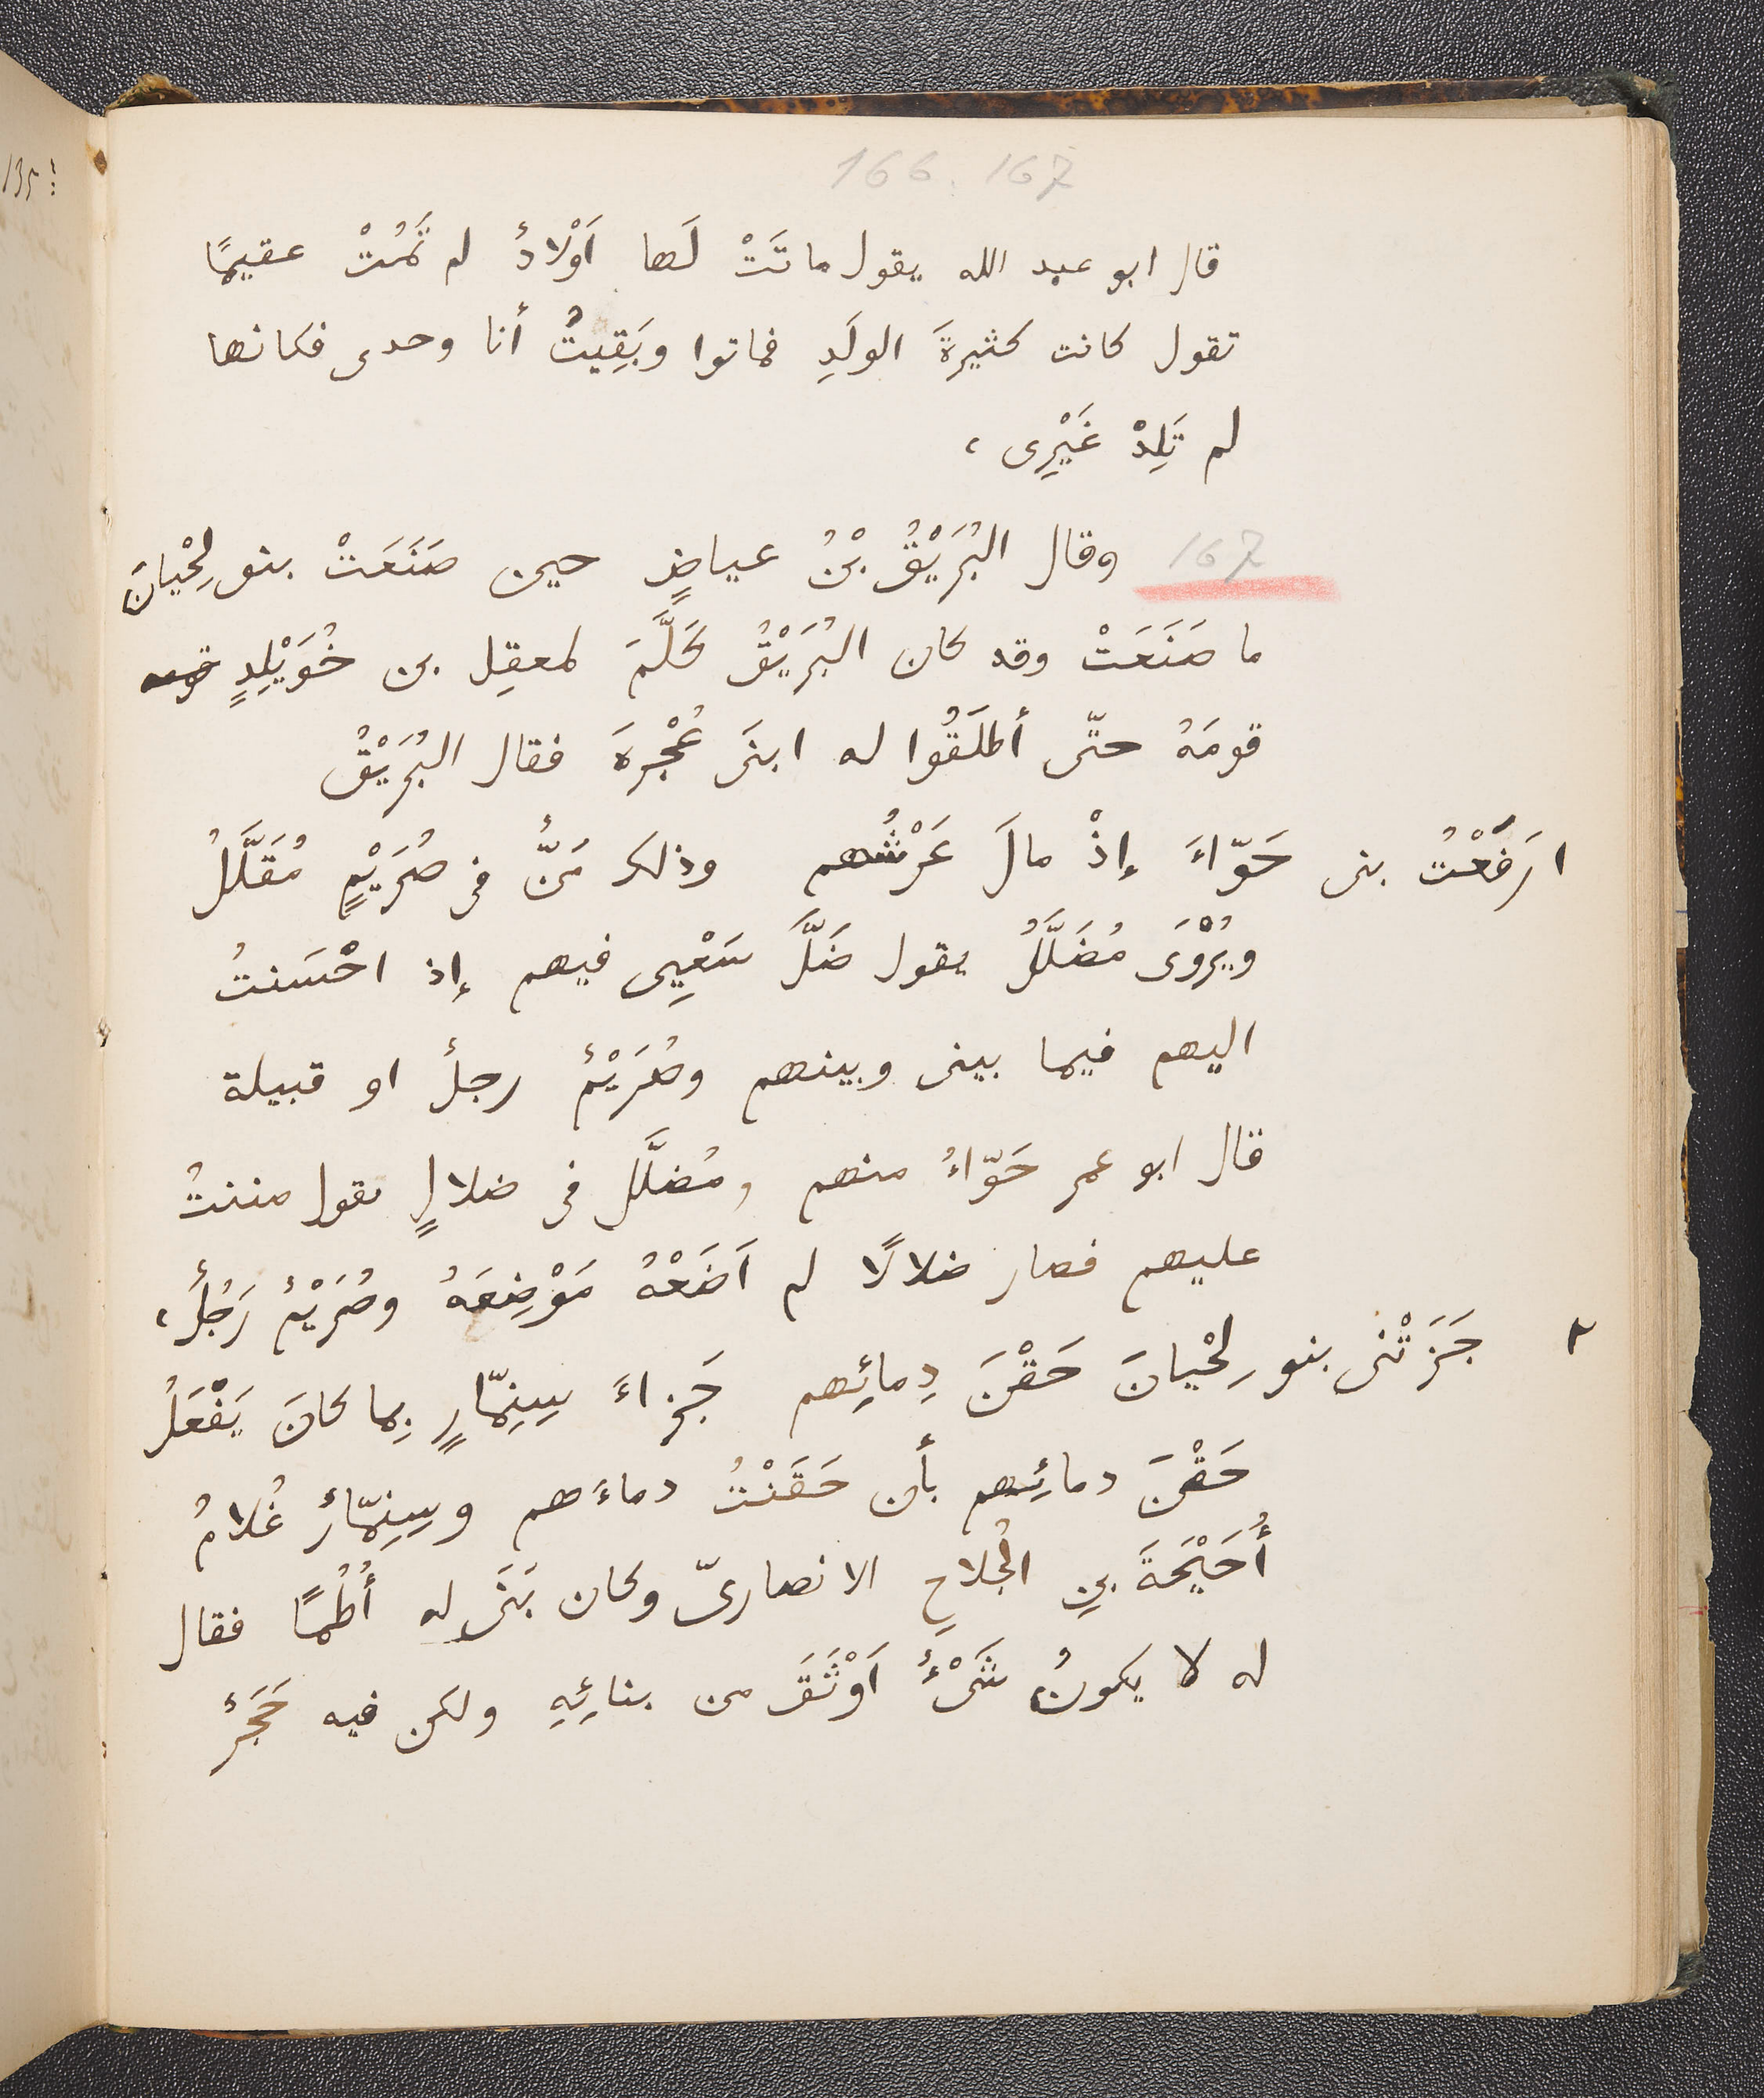 166. 167
قال ابو عبد الله يقول ماتَتْ لَها اَوْلادٌ لم تَمُتْ عقيمًا
تقول كانت كثيرةَ الولَدِ فماتوا وبَقِيتُ أنا وحدى فكانها
لم تَلِدْ غَيْرِى ،
167 وقال البُرَيْقُ بْنُ عياضٍ حين صَنَعَتْ بنو لِحْيانَ
ما صَنَعَتْ وقد كان البُرَيْقُ كَلَّمَ لمعقِل بن خُوَيْلِدٍ
قومَهُ حتّى أطلَقُوا له ابنَى عُجْرةَ فقال البُرَيْقُ
١ رَفَعْتُ بنى حَوّاءَ إذْ مالَ عَرْشُهم وذلك مَنٌّ فى صُرَيْمٍ مُقَلَّلُ
ويُرْوَى مُضَلَّلُ يقول ضَلَّ سَعْيِى فيهم إذ احْسَنتُ
اليهم فيما بينى وبينهم وصُرَيْمٌ رجلٌ او قبيلة
قال ابو عمر حَوّاءُ منهم ومُضلَّل فى ضلالٍ يقول مننتُ
عليهم فصار ضلالًا لم اَضَعْهُ مَوْضِعَهُ وصُرَيْمٌ رَجُلٌ ،
٢ جَزَتْنى بنو لِحْيانَ حَقْنَ دِمائِهم جَزاءَ سِنِمّارٍ بِما كانَ يَفْعَلُ
حَقْنَ دمائِهم بأن حَقَنْتُ دماءَهم وسِنِمّارٌ غُلامُ
أُحَيْحَةَ بنِ الجُلاحِ الانصارىّ وكان بَنَى له أُطُمًا فقال
له لا يكونُ شَىْءٌ اَوْثَقَ من بنائِهِ ولكن فيه حَجَرٌ